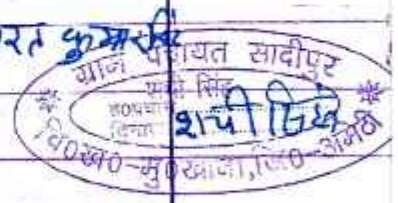 रत कुमार सिंह
ग्राम पंचायत सादीपुर
सिंह
शची सिंह
वि०ख०-मु०खाना,जि०-अमेठी